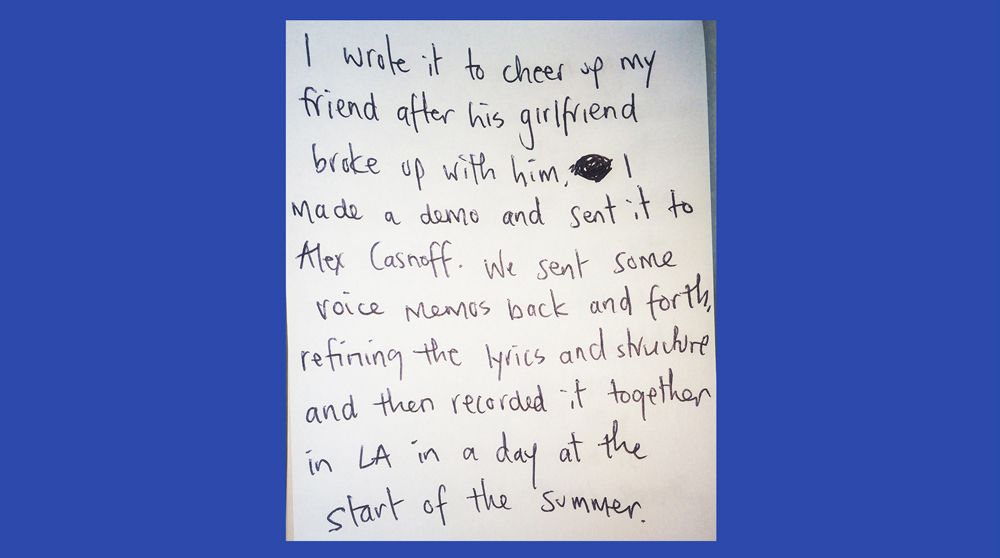 I wrote it to cheer up my
friend after his girlfriend
broke up with him. I
made a demo and sent it to
Alex Casnoff. We sent some
voice memos back and forth,
refining the lyrics and structure
and then recorded it together
in LA in a day at the
start of the summer.